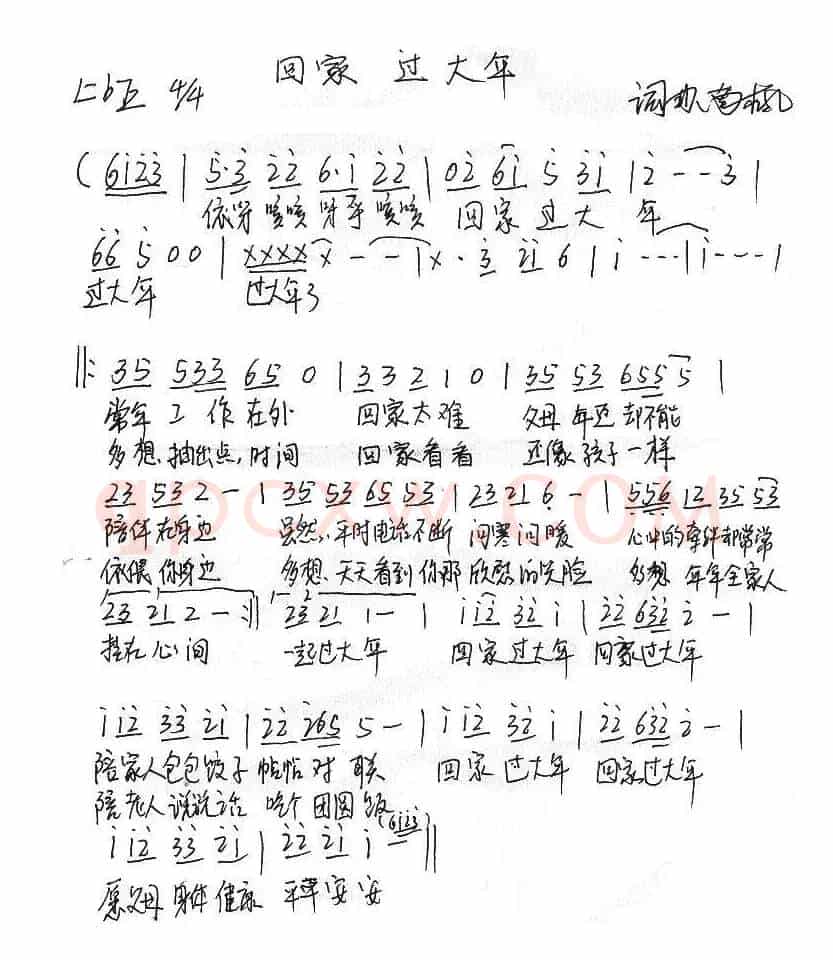 回家 过大年
1=bE 4/4
词曲
( 6123 | 5·3 22 6·1 22 | 02 61 5 31 | 2 - - 3 |
依呀 嗨嗨 呀乎 嗨嗨 回家 过大 年
66 5 0 0 | xxxx x - - | x · 3 21 6 | 1 - - - | 1 - - - |
过大年 过大年了
‖: 35 533 65 0 | 33 2 1 0 | 35 53 655 5 |
常年 工作 在外 回家太难 父母 年迈 却不能
多想 抽出点 时间 回家看看 还像 孩子 一样
23 532 - | 35 53 65 53 · | 23 21 6 - | 556 12 35 53
陪伴在身边 虽然 平时电话不断 问寒问暖 心中的牵绊却常常
依偎 你身边 多想 天天看到 你那 欣慰的笑脸 多想 年年全家人
1 2
23 21 2 - :‖ 23 21 1 - | 1 12 32 1 | 22 632 2 - |
挂在心间 一起过大年 回家 过大年 回家过大年
1 12 33 21 | 22 265 5 - | 1 12 32 1 | 22 632 2 - |
陪家人包包饺子 帖帖对联 回家 过大年 回家过大年
陪老人说说话 吃个 团圆饭
1 12 33 21 | 22 21 1 (6123) - ‖
愿父母 身体 健康 平平安安
qpcxw.com